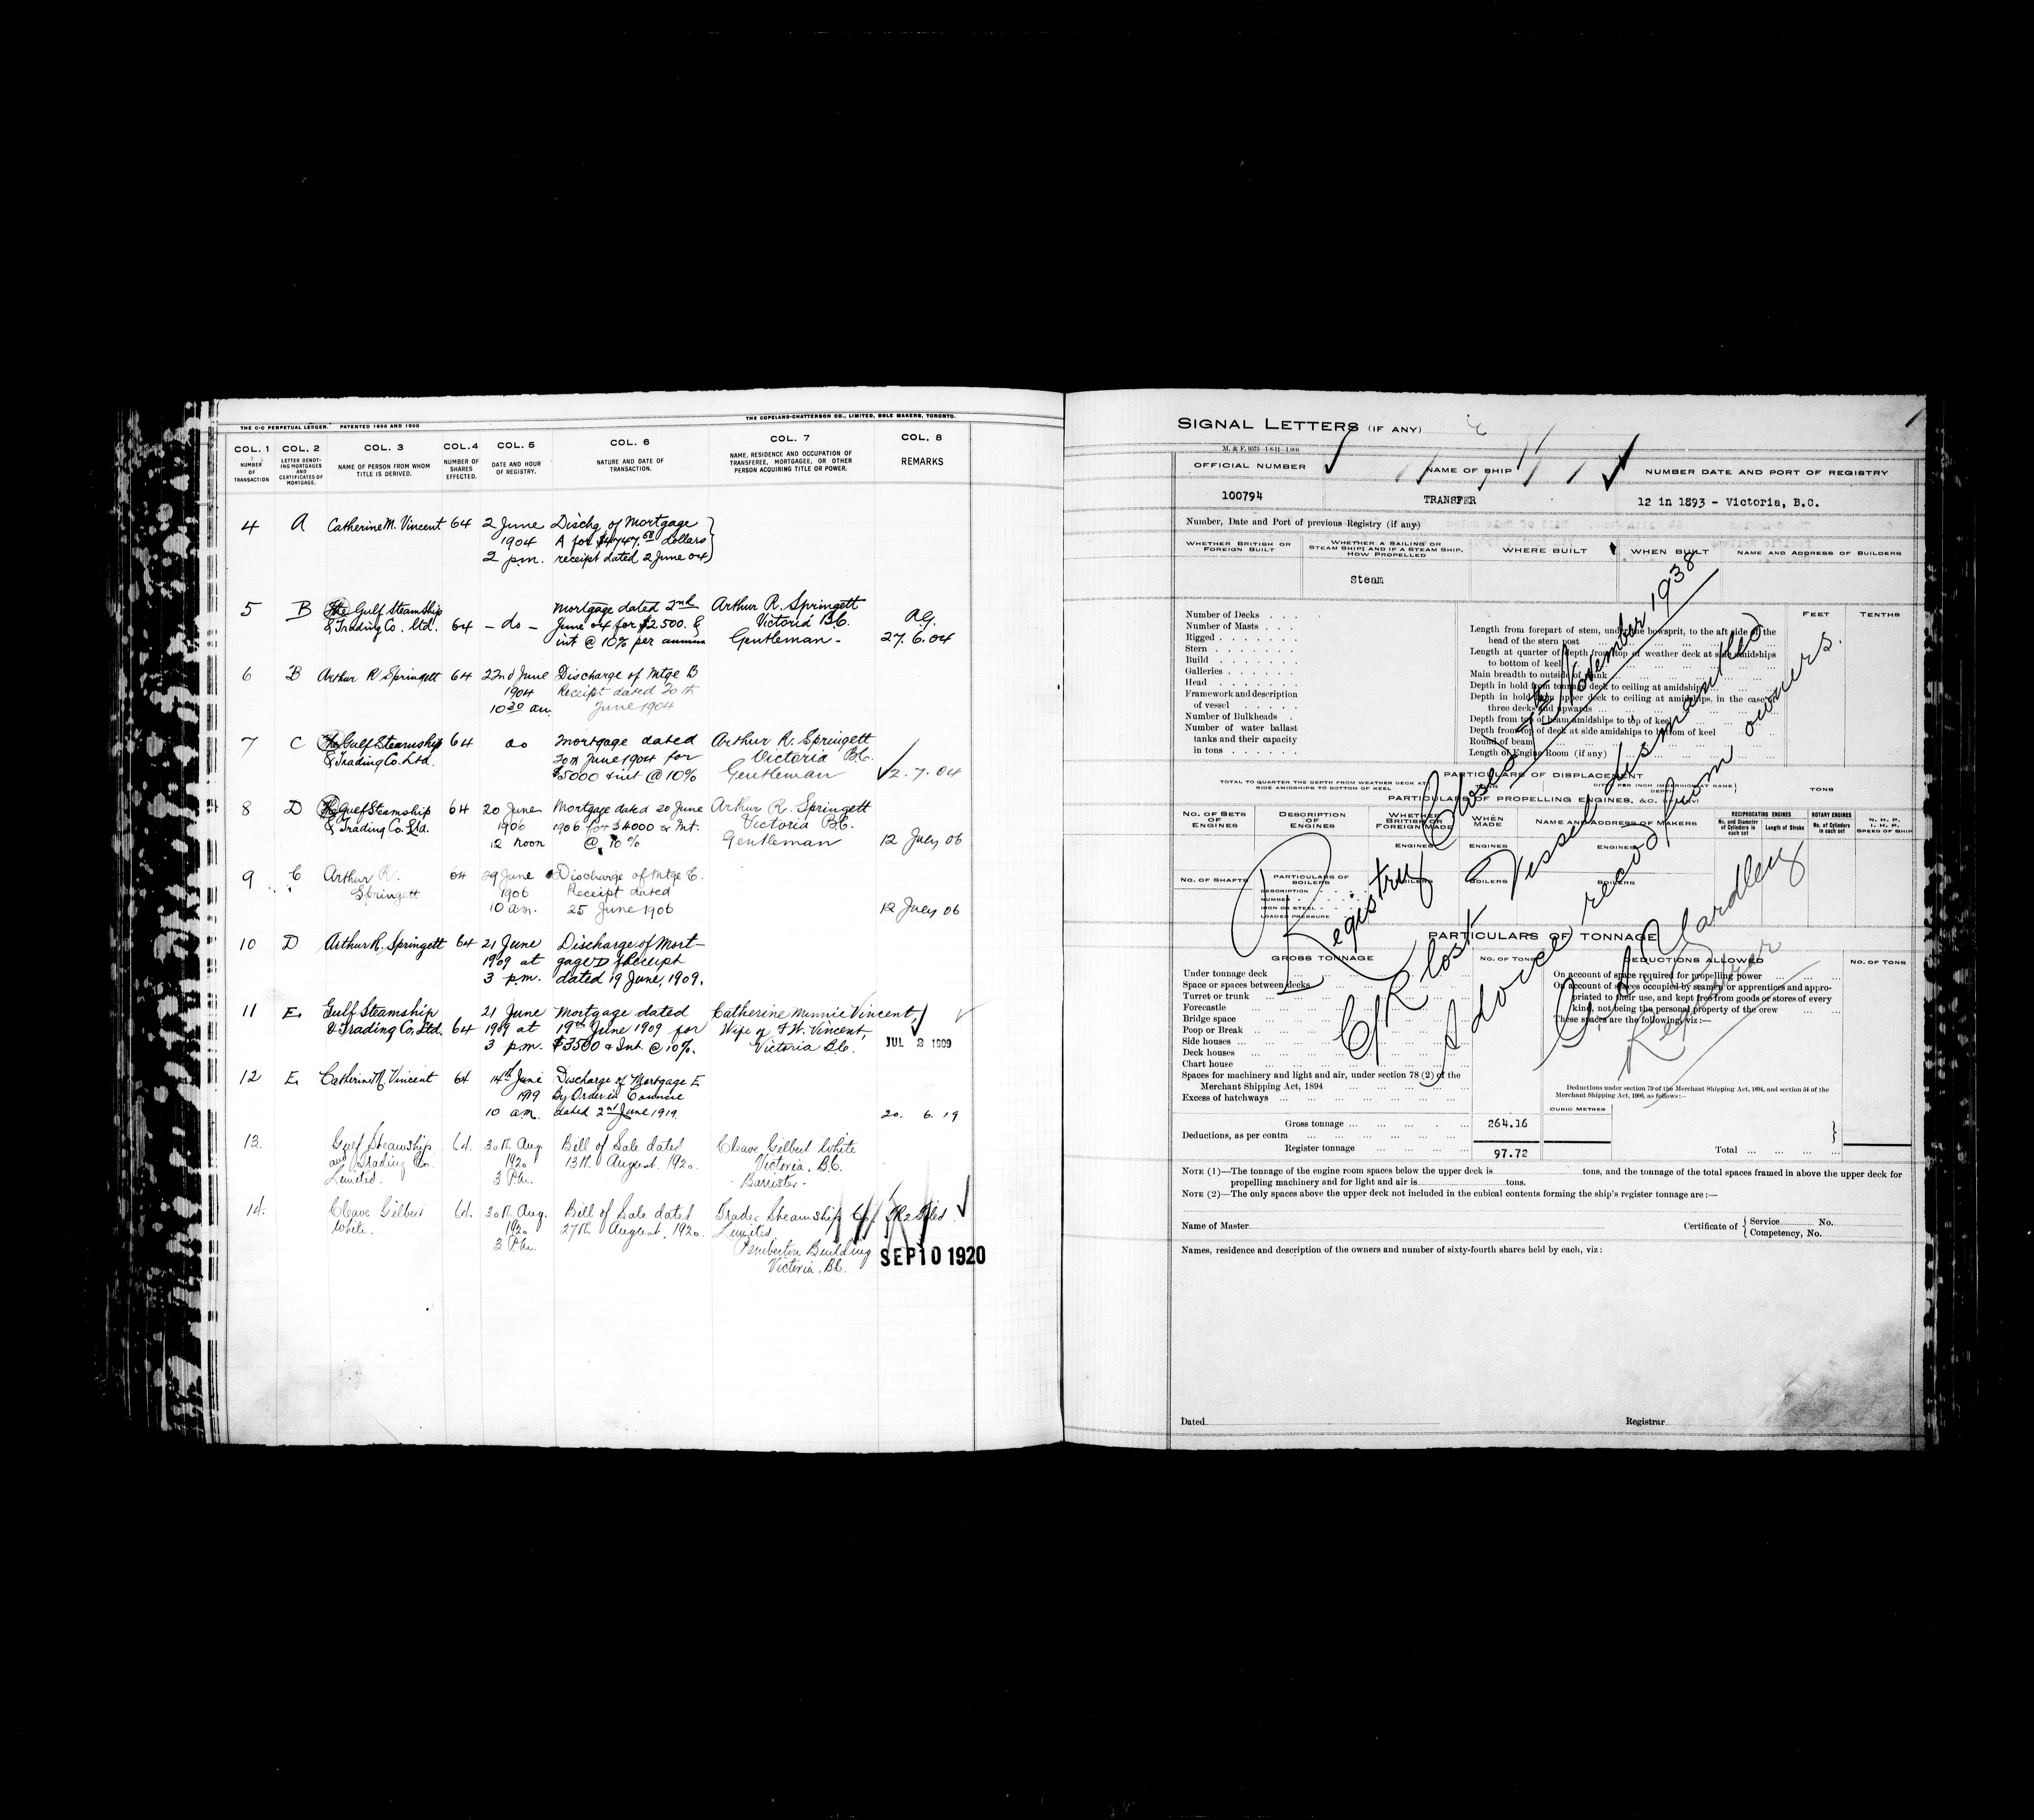 THE C-C PERPETUAL LEDGER. PATENTED 1896 AND 1900
THE COPELAND-CHATTERSON CO., LIMITED, SOLE MAKERS, TORONTO.
COL. 1 COL. 2 COL. 3 COL. 4 COL. 5 COL. 6 COL. 7 COL. 8
NUMBER OF TRANSACTION
LETTER DENOTING MORTGAGES AND CERTIFICATES OF MORTGAGE.
NAME OF PERSON FROM WHOM TITLE IS DERIVED.
NUMBER OF SHARES EFFECTED.
DATE AND HOUR OF REGISTRY.
NATURE AND DATE OF TRANSACTION.
NAME, RESIDENCE AND OCCUPATION OF TRANSFEREE, MORTGAGEE, OR OTHER PERSON ACQUIRING TITLE OR POWER.
REMARKS
4 A Catherine M. Vincent 64 2 June Dischg of Mortgage
1904 A for $4747.58 dollars
2 pm. receipt dated 2 June 04
5 B The Gulf Steamship Mortgage dated 2nd Arthur R. Springett
& Trading Co. Ltd. 64 - do - June 04 for $2500. & Victoria B.C. AG.
int @ 10% per annum Gentleman - 27.6.04
6 B Arthur R Springett 64 22nd June Discharge of Mtge B
1904 Receipt dated 20th
10 30 am June 1904
7 C The Gulf Steamship 64 do Mortgage dated Arthur R. Springett
& Trading Co. Ltd. 20th June 1904 for Victoria B.C.
$5000 & int @ 10% Gentleman 2.7.04
8 D The Gulf Steamship 64 20 June Mortgage dated 20 June Arthur R. Springett
& Trading Co. Ltd. 1906 1906 for $4000 & Int. Victoria B.C.
12 noon @ 10% Gentleman 12 July 06
9 C Arthur R. 64 29 June Discharge of Mtge C.
Springett 1906 Receipt dated
10 am. 25 June 1906 12 July 06
10 D Arthur R. Springett 64 21 June Discharge of Mort-
1909 at gage D Receipt
3 p.m. dated 19 June, 1909.
11 E. Gulf Steamship 21 June Mortgage dated Catherine Minnie Vincent,
& Trading Co, Ltd. 64 1909 at 19th June 1909 for Wife of F.W. Vincent,
3 p.m. $3500 & Int @ 10%. Victoria B.C. JUL 2 1909
12 E. Catherine M Vincent 64 14th June Discharge of Mortgage E
1919 By Order in Council
10 am. dated 2nd June 1919. 20. 6. 19
13. Gulf Steamship 64. 30th Aug Bill of Sale dated Cleave Gilbert White
and Trading Co. 1920 13th August. 1920. Victoria, B.C.
Limited. 3 P.m. - Barrister -
14. Cleave Gilbert 64. 30th Aug. Bill of Sale dated Trader Steamship Co. TR2 Filed
White. 1920 27th August. 1920. Limited
3 P.m. Pemberton Building
Victoria. B.C.
SEP 10 1920
SIGNAL LETTERS (IF ANY)
M. & F. 9575—1-8-11—1,000
OFFICIAL NUMBER NAME OF SHIP NUMBER DATE AND PORT OF REGISTRY
100794 TRANSFER 12 in 1893 - Victoria, B.C.
Number, Date and Port of previous Registry (if any)
WHETHER BRITISH OR FOREIGN BUILT
WHETHER A SAILING OR STEAM SHIP; AND IF A STEAM SHIP, HOW PROPELLED
WHERE BUILT WHEN BUILT NAME AND ADDRESS OF BUILDERS
Steam
Number of Decks
Number of Masts
Rigged
Stern
Build
Galleries
Head
Framework and description
of vessel
Number of Bulkheads
Number of water ballast
tanks and their capacity
in tons
FEET TENTHS
Length from forepart of stem, under the bowsprit, to the aft side of the
head of the stern post
Length at quarter of depth from top of weather deck at side amidships
to bottom of keel
Main breadth to outside of plank
Depth in hold from tonnage deck to ceiling at amidships
Depth in hold from upper deck to ceiling at amidships, in the case of
three decks and upwards
Depth from top of beam amidships to top of keel
Depth from top of deck at side amidships to bottom of keel
Round of beam
Length of Engine Room (if any)
PARTICULARS OF DISPLACEMENT
TOTAL TO QUARTER THE DEPTH FROM WEATHER DECK AT SIDE AMIDSHIPS TO BOTTOM OF KEEL
TONS
PARTICULARS OF PROPELLING ENGINES, &C. (IF ANY)
NO. OF SETS OF ENGINES
DESCRIPTION OF ENGINES
WHETHER BRITISH OR FOREIGN MADE
WHEN MADE
NAME AND ADDRESS OF MAKERS
RECIPROCATING ENGINES
No. and Diameter of Cylinders in each set
Length of Stroke
ROTARY ENGINES
No. of Cylinders in each set
N. H. P.
I. H. P.
SPEED OF SHIP
ENGINES ENGINES ENGINES
NO. OF SHAFTS
PARTICULARS OF BOILERS
DESCRIPTION
NUMBER
IRON OR STEEL
LOADED PRESSURE
BOILERS BOILERS BOILERS
PARTICULARS OF TONNAGE
GROSS TONNAGE NO. OF TONS DEDUCTIONS ALLOWED NO. OF TONS
Under tonnage deck
Space or spaces between decks
Turret or trunk
Forecastle
Bridge space
Poop or Break
Side houses
Deck houses
Chart house
Spaces for machinery and light and air, under section 78 (2) of the
Merchant Shipping Act, 1894
Excess of hatchways
On account of space required for propelling power
On account of spaces occupied by seamen or apprentices and appro-
priated to their use, and kept free from goods or stores of every
kind, not being the personal property of the crew
These spaces are the following, viz :—
Deductions under section 79 of the Merchant Shipping Act, 1894, and section 54 of the
Merchant Shipping Act, 1906, as follows:—
CUBIC METRES
Gross tonnage 264.16
Deductions, as per contra
Register tonnage 97.72
Total
Registry Closed 7th November 1938
C/R lost Vessel dismantled
Advice recd from owners.
Yardley
Registrar
NOTE (1)—The tonnage of the engine room spaces below the upper deck is tons, and the tonnage of the total spaces framed in above the upper deck for
propelling machinery and for light and air is tons.
NOTE (2)—The only spaces above the upper deck not included in the cubical contents forming the ship's register tonnage are :—
Name of Master Certificate of { Service No.
Competency, No.
Names, residence and description of the owners and number of sixty-fourth shares held by each, viz :
Dated Registrar